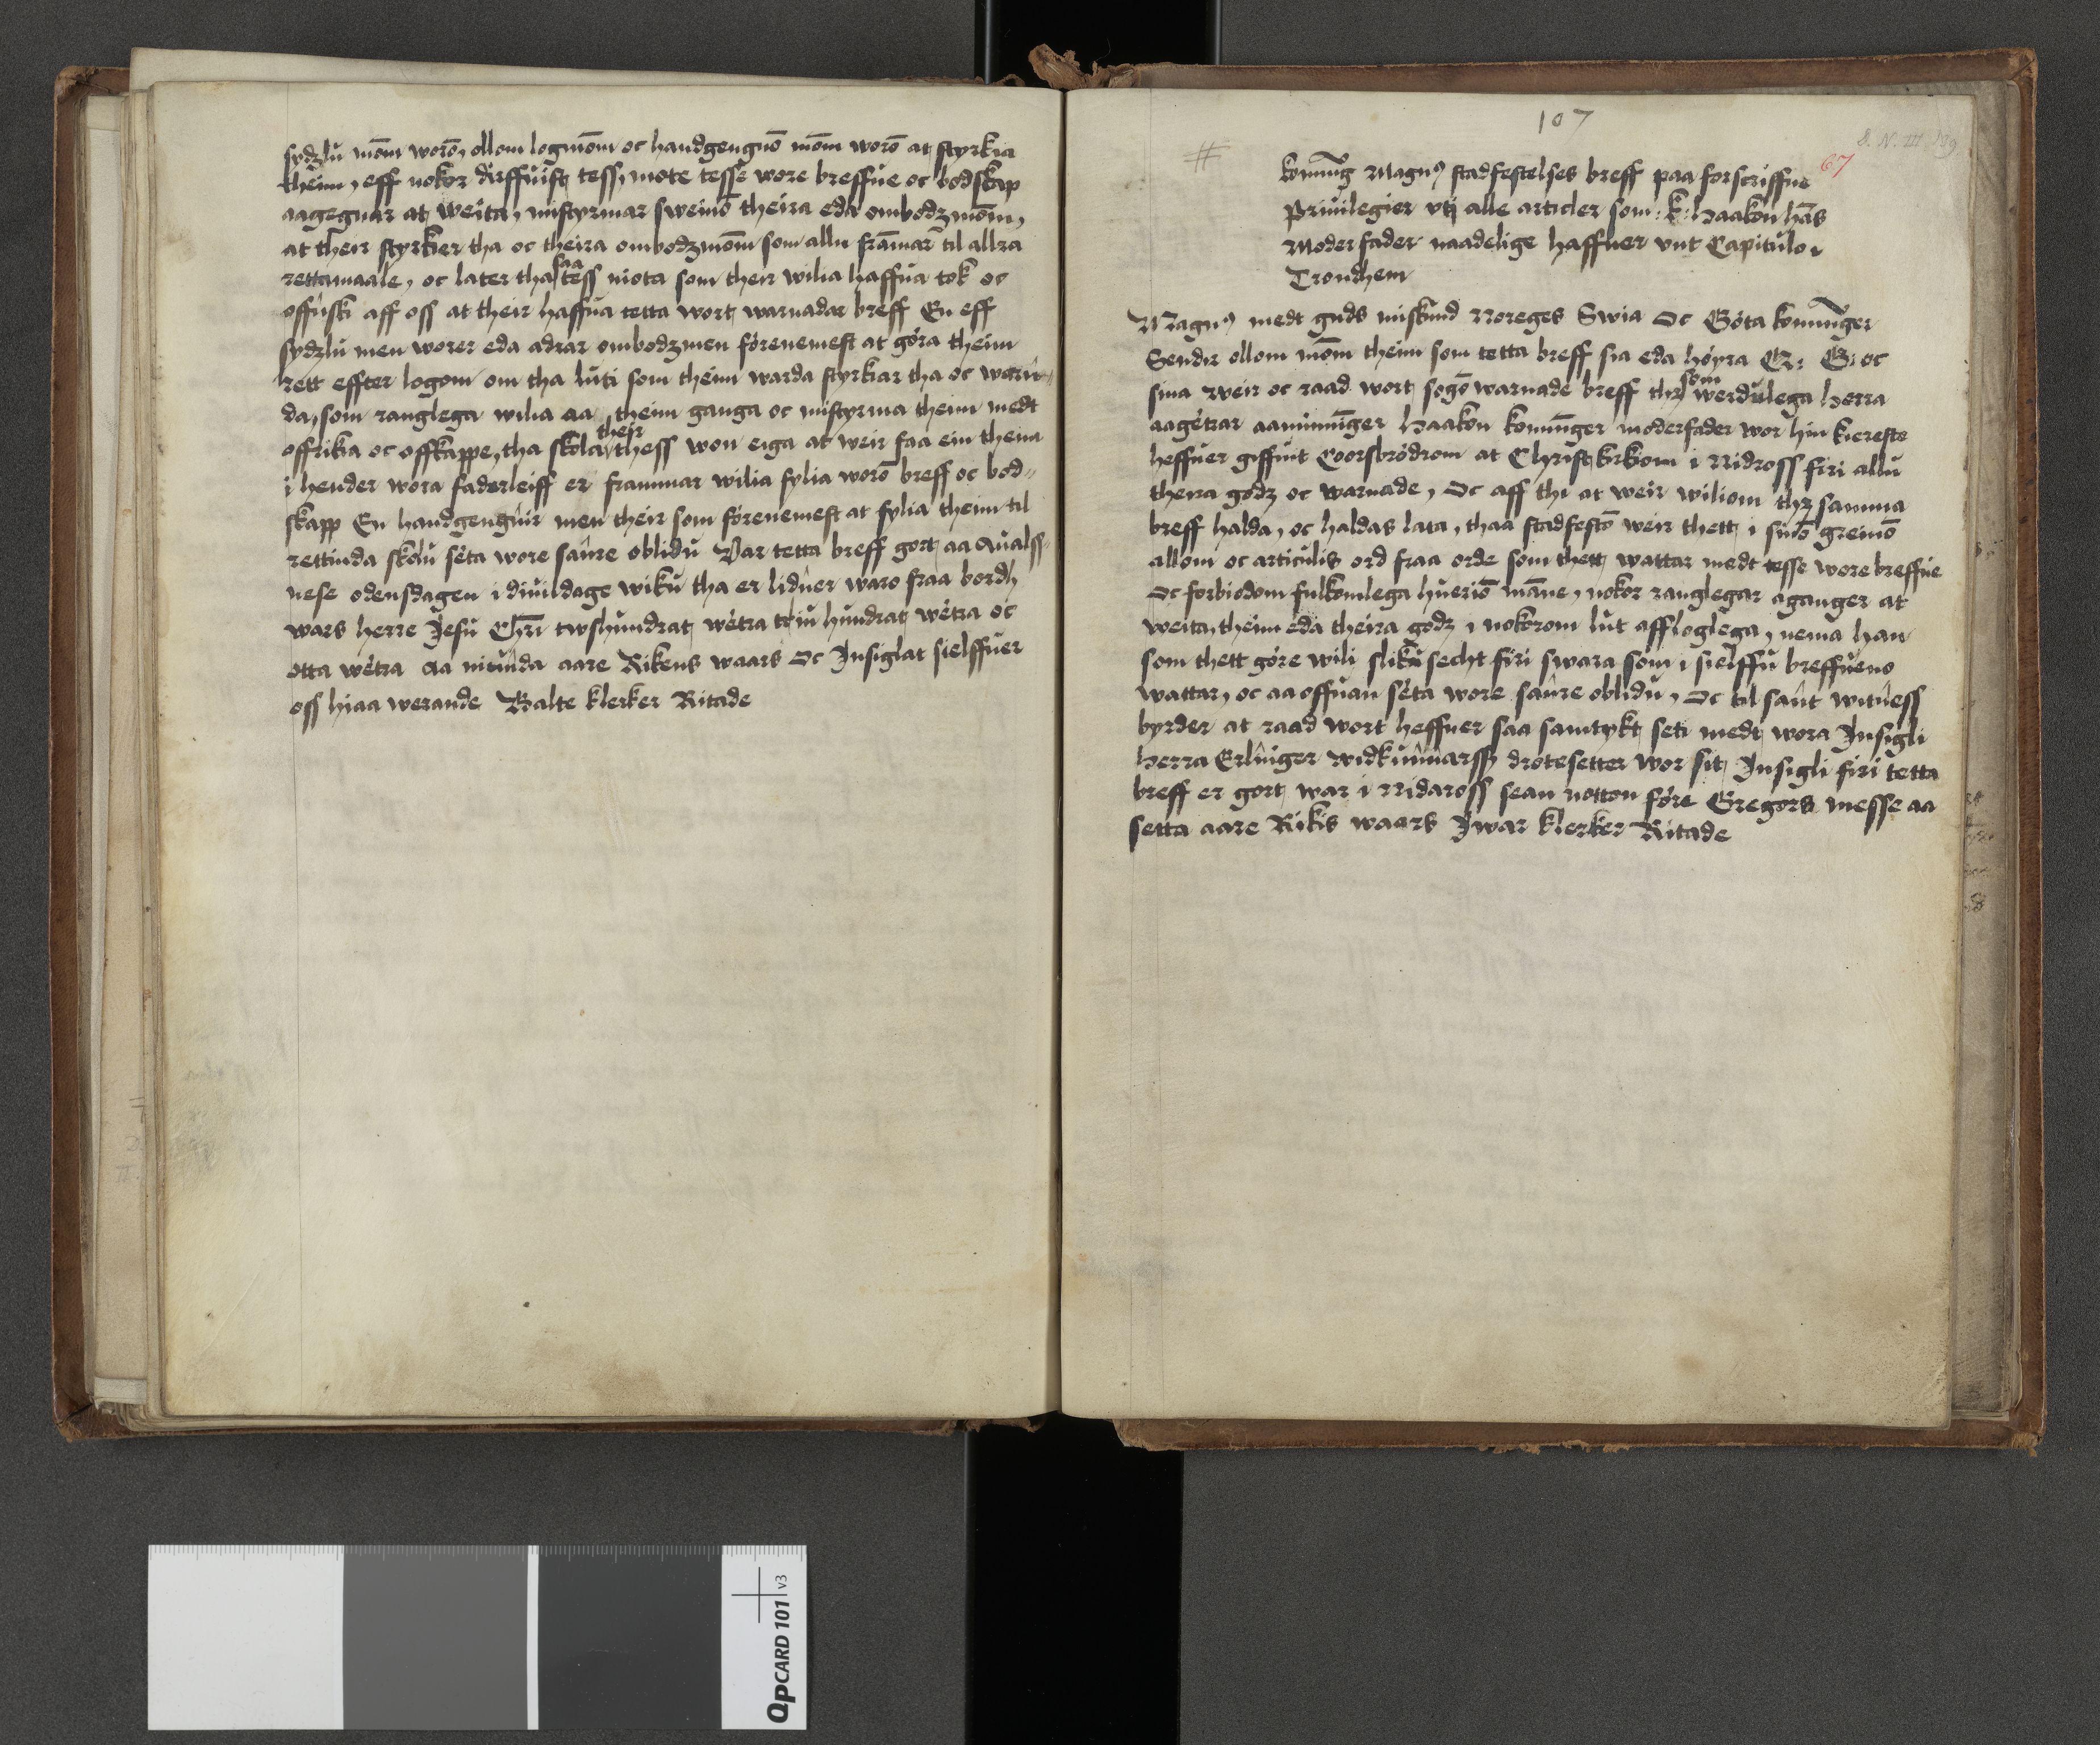 sydzlu mōm worō, ollom logmōm oc handgengnō mōm worō at styrkia
theim, eff nokor dirffuist tess, mote tesse wore breffue oc bodskap
aagegnar at weita, mistyrmar sweinō theira eda ombodzmōm,
at their styrkier tha oc theira ombodzmōm som allu frāmar til allra
rettamaale, oc later tha saa tess niota som their wilia haffua tok oc
offuski aff oss at their haffua tetta wort warnadar breff En eff
sydzlu men worer eda adrar ombodzmen forenemest at gora theim
rett effter logom om tha luti som theim warda styrkiar tha oc warn-
da, som ranglega wilia aa theim ganga oc mistyrma theim medt
offrikia oc offkappe, tha skola their thess won eiga at weir faa ein thena
i hender wora faderleiff er frammar wilia fylia worō breff oc bod-
skapp En handgengnir men their som forenemest at fylia theim til
rettinda skolu seta wore sanre oblidu Var tetta breff gort aa Aualss-
nese odensdagen i diuildage wiku tha er lidner waro fraa bordh
wars herre Jesu Chrī twshundrat wetra triu hundrat wetra oc
otta wetra aa nitunda aare Rikens waars Oc Insiglat sielffuer
oss hiaa werande Balte klerker Ritade
107
#
D. N. III 139
67
konnūg Magn9 stadfestelses breff paa forscriffne
Priuilegier vtj alle articler som: k: Haakon hās
Moder fader naadelige haffuer vnt Capitulo i
Trondhem
Magn9 medt guds miskund Noreges Swia Oc Gota konnūger
Sendir ollom mōm theim som tetta breff sia eda hoyra Q: G: oc
sina weir oc raad wort sogō warnade breff thz som werdulega Herra
aagetrar aaminnīger Haakon konnūger moderfader wor hin kiereste
heffuer giffuit Coorsbrodrom at Christkirkiom i Nidross firi allu
theira godz oc warnade, Oc aff thi at weir wiliom thz samma
breff halda, oc haldas lata, thaa stadfestō weir thett i sinō greinō
allom oc articulis ord fraa orde som thett wattar medt tesse wore breffue
Oc forbiodom fulkomlega hueriō māne, nokor ranglegar aganger at
weita, theim eda theira godz i nokorom lut affloglega, nema han
som thett gore wili sliku secht firi swara som i sielffu breffueno
wattar, oc aa offuan seta wore sanre oblidu, Oc til sant witness
byrder at raad wort heffuer saa samtykt seti medt wora Insigli
Herra Erlinger widkunnarss drotesetter wor sit Insigli firi tetta
breff er gort war i Nidaross sean notton fore Gregors messe aa
setta aare Rikis waars Iwar klerker Ritade
QpCARD 101 v3